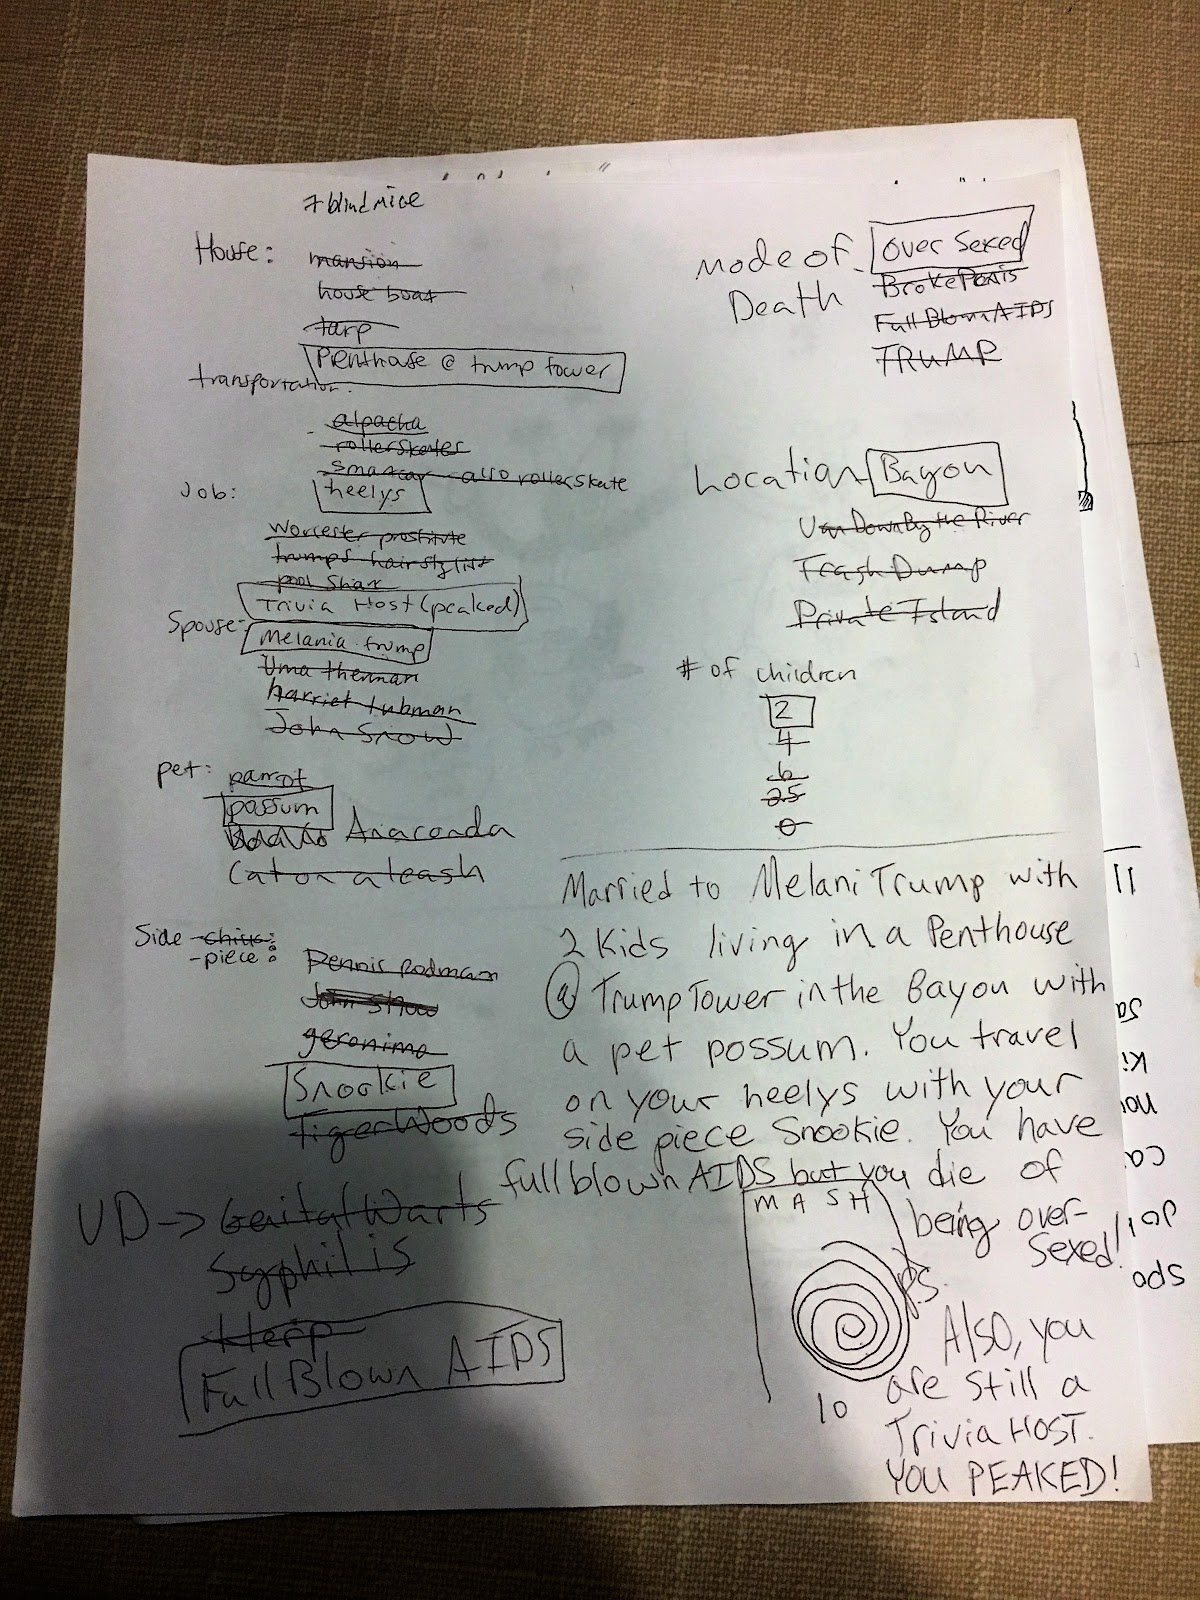 7 blind mice
House:
mansion
house boat
tarp
Penthouse @ trump tower
transportation:
alpacha
rollerskates
smartcar also rollerskate
heelys
Job:
Worcester prostitute
trumps hairstylist
pool shark
Trivia Host (peaked)
Spouse:
Melania trump
Uma therman
harriet tubman
John Snow
pet:
parrot
possum
Anaconda
Cat on a leash
Side
-piece:
Dennis rodman
John Snow
geronimo
Snookie
Tiger Woods
VD -> Genital Warts
Syphilis
Herp
Full Blown AIDS
Mode of Death
Over Sexed
Broke Penis
Full Blown AIDS
TRUMP
Location
Bayou
Van Down By the River
Trash Dump
Private Island
# of children
2
4
6
25
0
Married to Melani Trump with
2 Kids living in a Penthouse
@ Trump Tower in the Bayou with
a pet possum. You travel
on your heelys with your
side piece Snookie. You have
full blown AIDS but you die of
being over-
sexed!
MASH
10
PS.
Also, you
are still a
Trivia HOST.
YOU PEAKED!